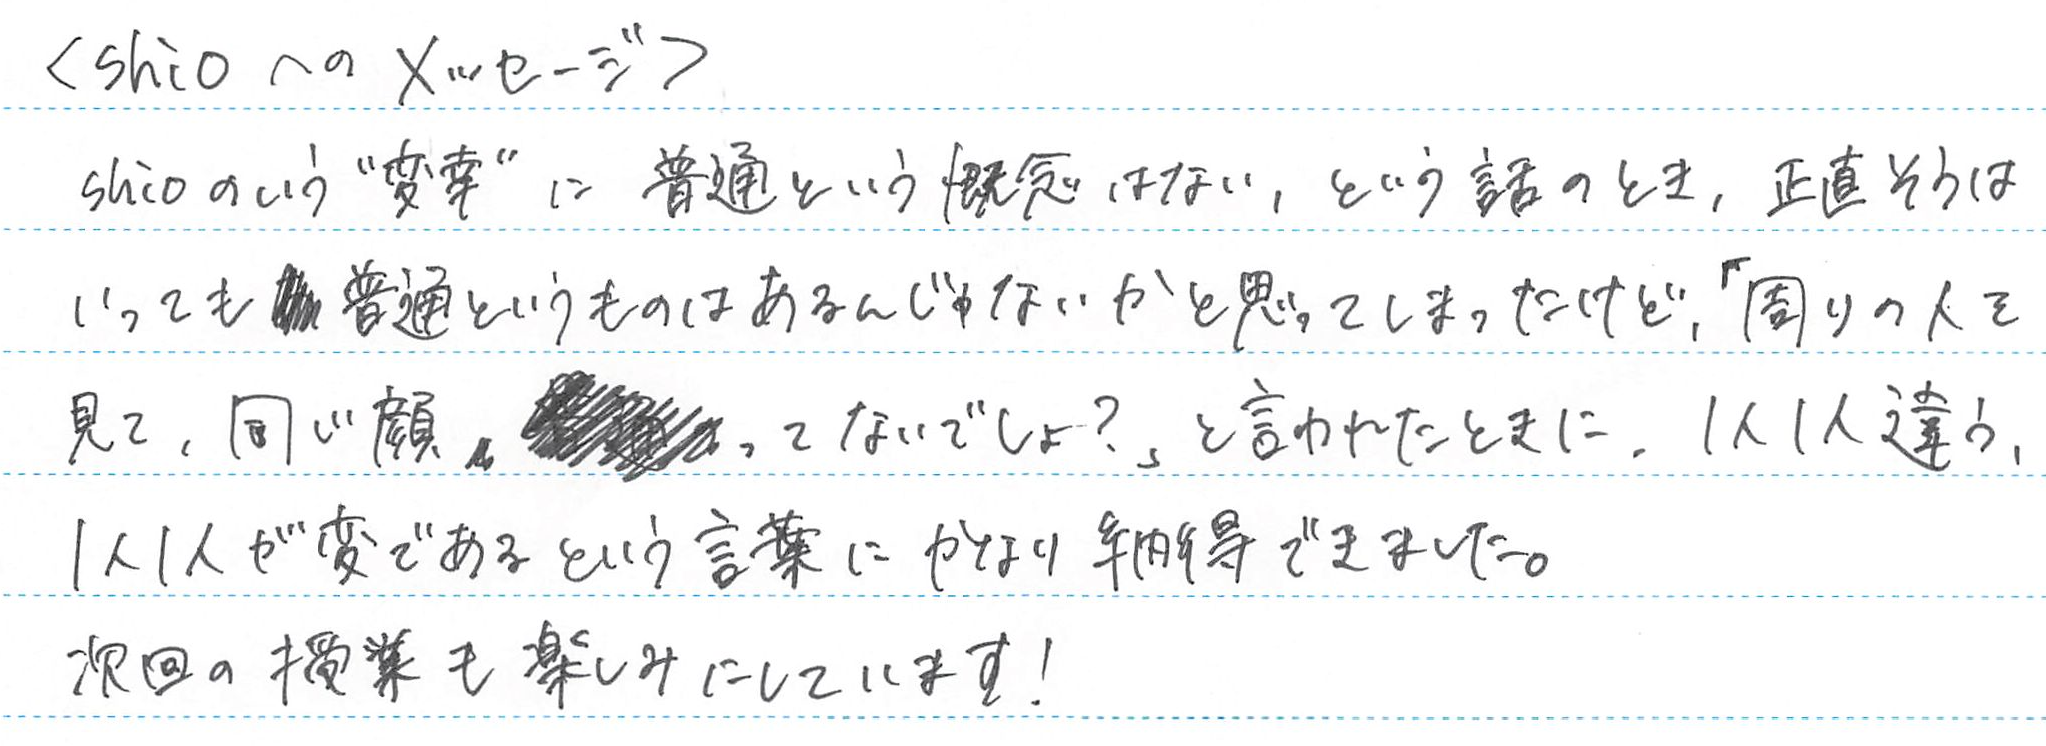 <shioへのメッセージ>
shioのいう"変幸"に普通という概念はない、という話のとき、正直そうは
いっても普通というものはあるんじゃないかと思ってしまったけど、「周りの人を
見て、同じ顔、ってないでしょ?」と言われたときに、1人1人違う、
1人1人が変であるという言葉にかなり納得できました。
次回の授業も楽しみにしています!